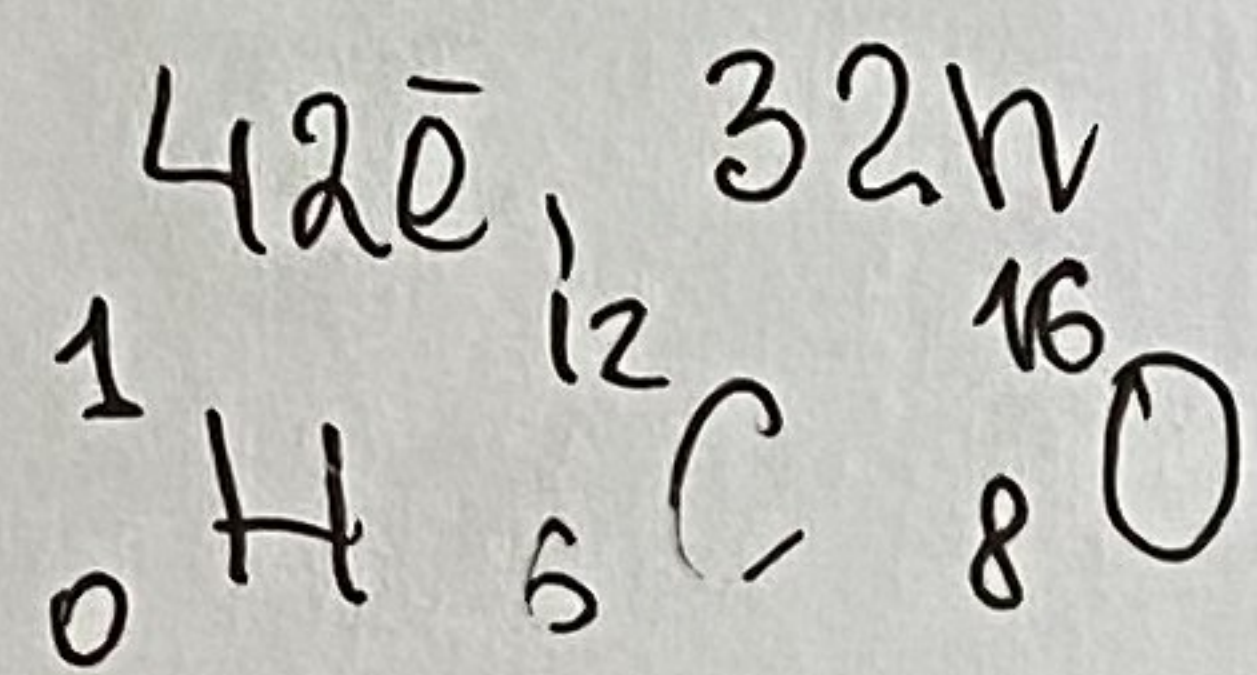 42ē, 32n
¹₀H ¹²₆C ¹⁶₈O